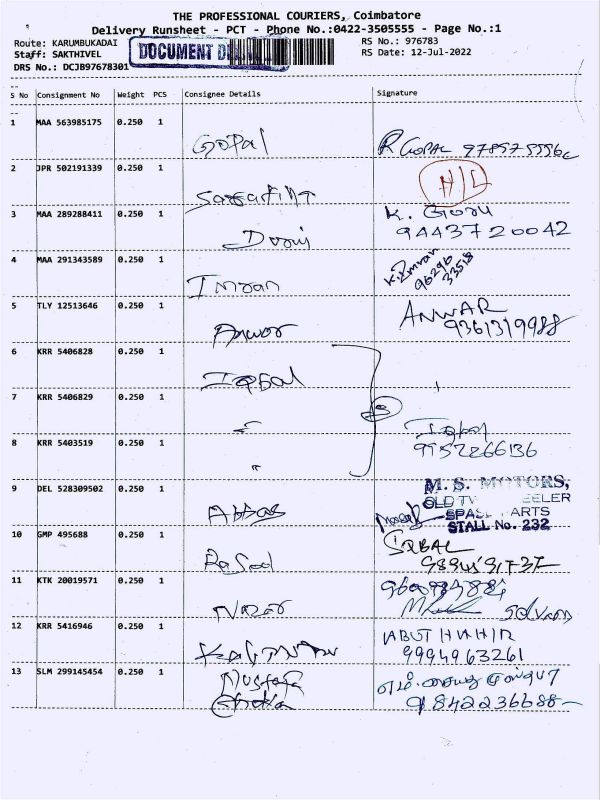 THE PROFESSIONAL COURIERS, Coimbatore
Delivery Runsheet - PCT - Phone No.:0422-3505555 - Page No.:1
Route: KARUMBUKADAI RS No.: 976783
Staff: SAKTHIVEL DOCUMENT RS Date: 12-Jul-2022
DRS No.: DCJB97678301
S No Consignment No Weight PCS Consignee Details Signature
1 MAA 563985175 0.250 1
Gopal R GOPAL
2 JPR 502191339 0.250 1
3 MAA 289288411 0.250 1 K. Guru
9443720042
4 MAA 291343589 0.250 1
Imran K. Imran 96296 33518
5 TLY 12513646 0.250 1 ANWAR
Anwar 9361319988
6 KRR 5406828 0.250 1
Iqbal
7 KRR 5406829 0.250 1
"
8 KRR 5403519 0.250 1 Iqbal
" 9952266136
9 DEL 528309502 0.250 1 M. S. MOTORS,
OLD
Abbas STALL No. 232
10 GMP 495688 0.250 1 IQBAL
Rasool
11 KTK 20019571 0.250 1
Nazar Selvam
12 KRR 5416946 0.250 1 ABUTHAHIR
9994963261
13 SLM 299145454 0.250 1
Mustafa 9842236688